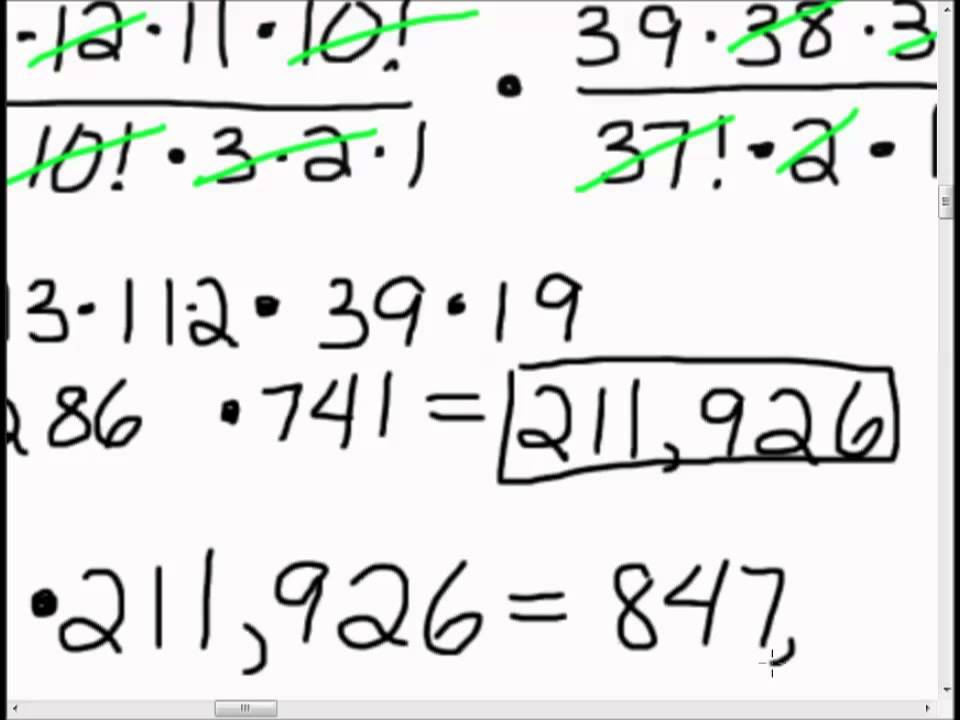 ·12·11·10! · 39·38·3
10!·3·2·1 37!·2·1
3·11·2·39·19
286 ·741=211,926
·211,926=847,